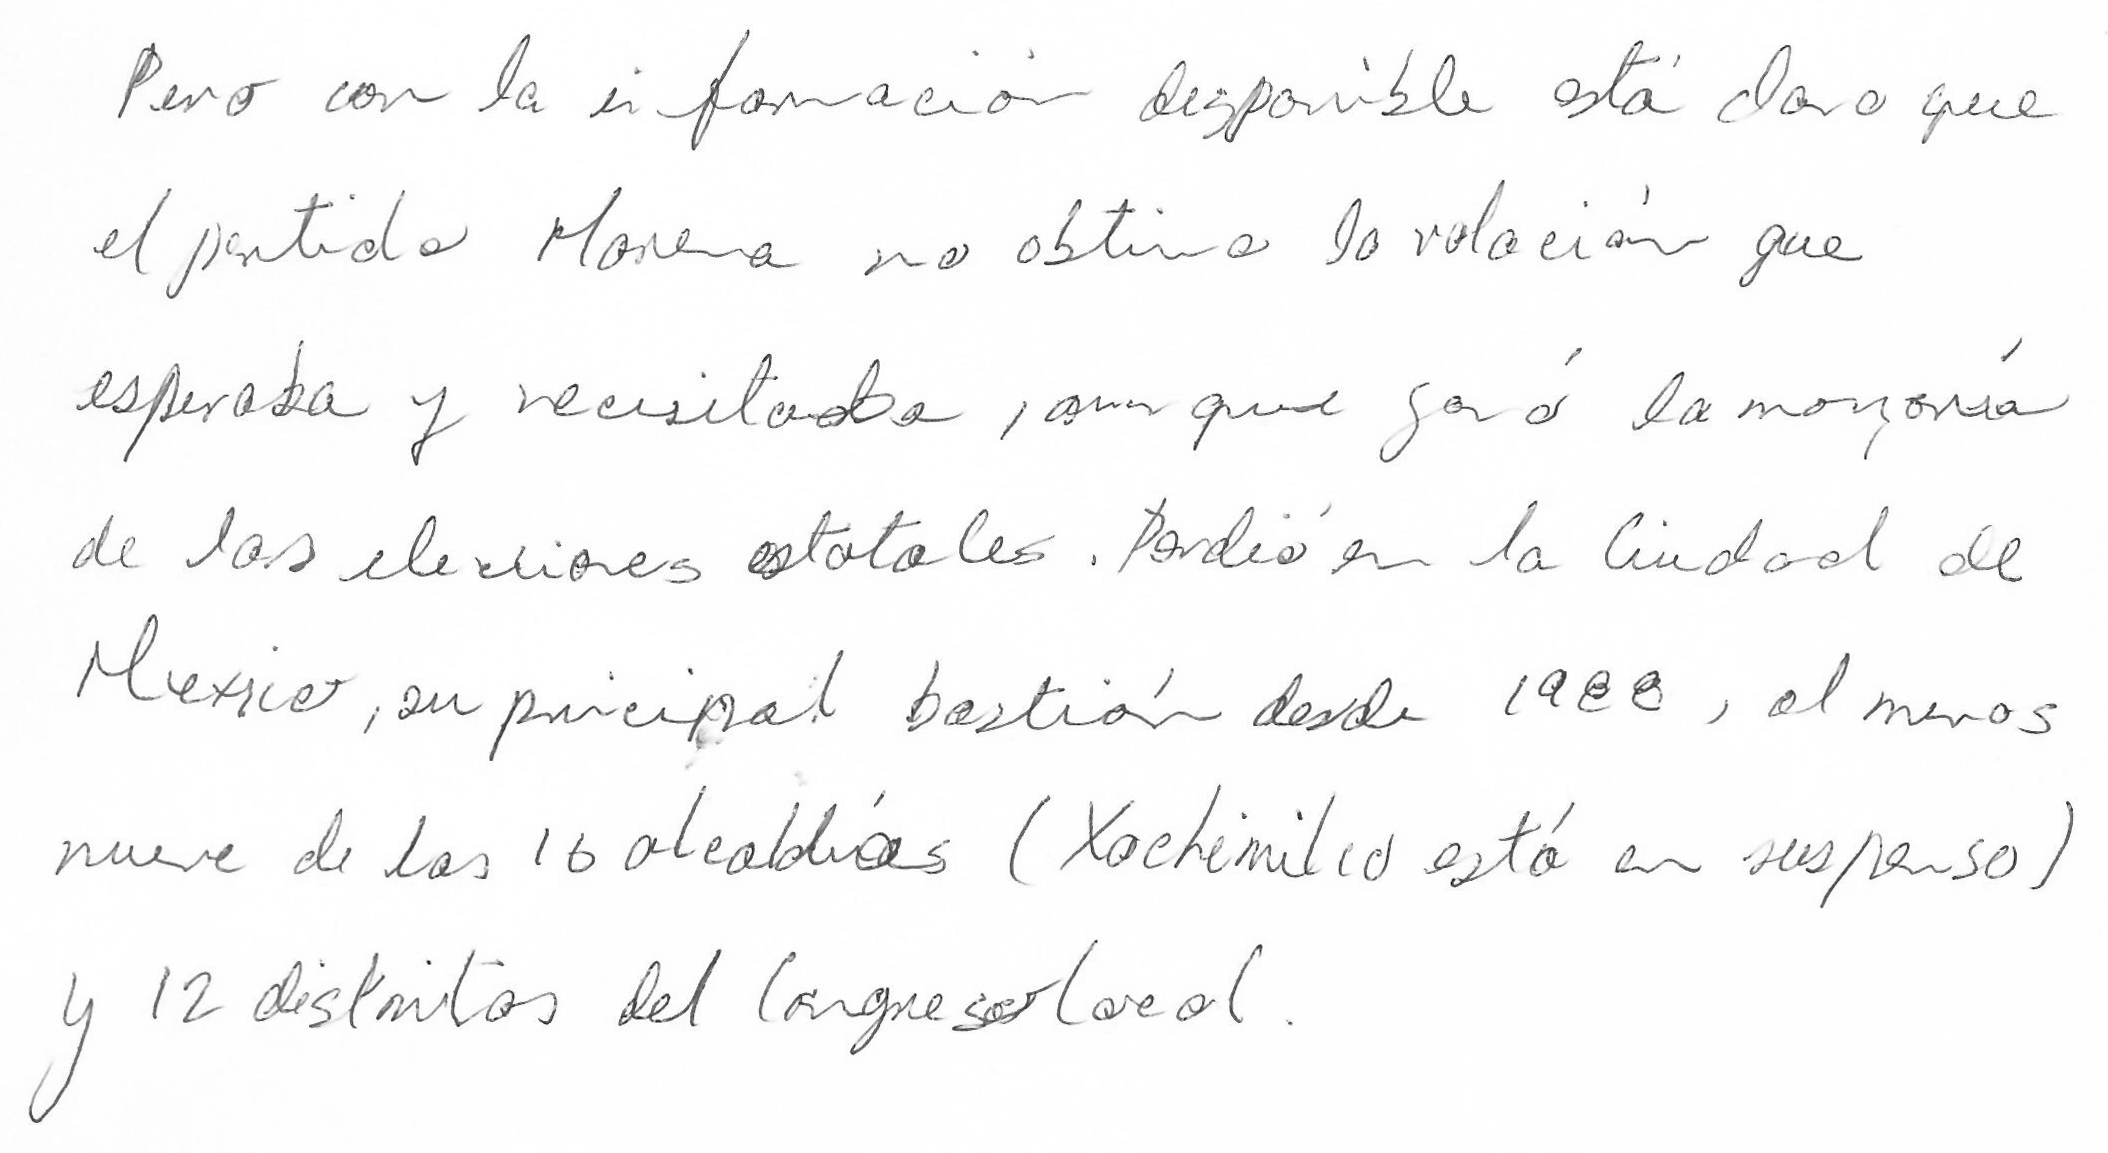 Pero con la información disponible está claro que
el partido Morena no obtuvo la votación que
esperaba y necesitaba, aunque ganó la mayoría
de las elecciones estatales. Perdió en la Ciudad de
Mexico, su pricipal bastión desde 1988, al menos
nueve de las 16 alcaldías (Xochimilco está en suspenso)
y 12 distritos del Congreso local.